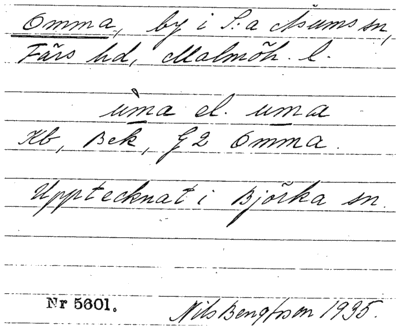 Omma, by i S:a Åsums sn,
Färs hd, Malmöh. l.
ùma el. uma
Kb, Bek, G2 Omma.
Upptecknat i Björka sn.
Nr 5601. Nils Bengtsson 1935.